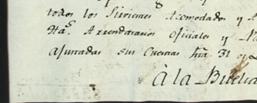 todos los Sirvientes Acomodados y A
Ha.ª Arrendatarios Oficiales y
Ajustadas sus Cuentas hta 31 de
à la Buelta